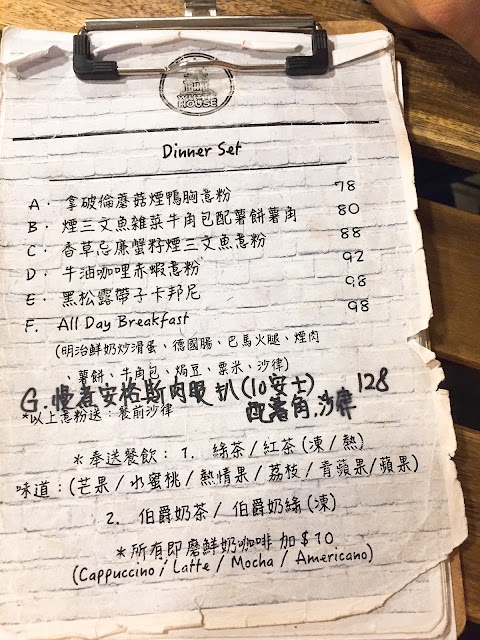 HOUSE
Dinner Set
A. 拿破倫蘑菇煙鴨胸意粉 78
B. 煙三文魚雜菜牛角包配薯餅薯角 80
C. 香草忌廉蟹籽煙三文魚意粉 88
D. 牛油咖哩赤蝦意粉 92
E. 黑松露帶子卡邦尼 98
F. All Day Breakfast 98
(明治鮮奶炒滑蛋、德國腸、巴馬火腿、煙肉
、薯餅、牛角包、焗豆、粟米、沙律)
G. 慢煮安格斯肉眼扒(10安士) 128
配薯角,沙律
*以上意粉送:餐前沙律
*奉送餐飲: 1. 綠茶/紅茶(凍/熱)
味道:(芒果/水蜜桃/熱情果/荔枝/青蘋果/蘋果)
2. 伯爵奶茶/伯爵奶綠(凍)
*所有即磨鮮奶咖啡 加$10
(Cappuccino / Latte / Mocha / Americano)